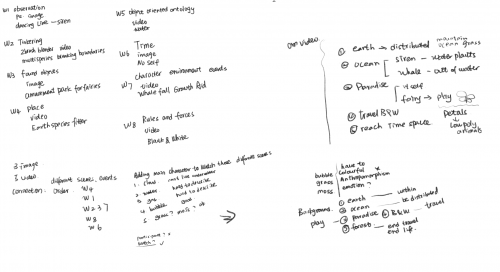 W1 observation
Pe image
dancing line — siren
W2 Tinkering
zbrush blender video
multispecies breaking boundaries
W3 found objects
image
amusement park for fairies
W4 place
video
Earth species filter
W5 object oriented ontology
video
water
Time
W6 image
No self
character environment events
W7 video
Whale fall, Growth Aid
W8 Rules and forces
video
Black & White
Our video
① earth → distributed
maintain
ocean grass
② ocean
siren — water plants
whale — out of water
③ Paradise
n self
fairy → play
Petals
④ travel B&W
low poly
animals
⑤ reach Time space
3 image
5 video
different scenes, events
connection: Order
W4
W1
W2 3 7
W8
W6
Adding main character to match three different scenes
1.
2. water hard to describe
3. gas hard to describe
4. bubble good
5. grass? moss? ok
bubble
grass
moss
have to
colourful
Anthropomorphism
emotion?
Background:
① earth within
② ocean be distributed
play — ③ paradise ④ B&W — travel
⑤ forest — end travel
end life.